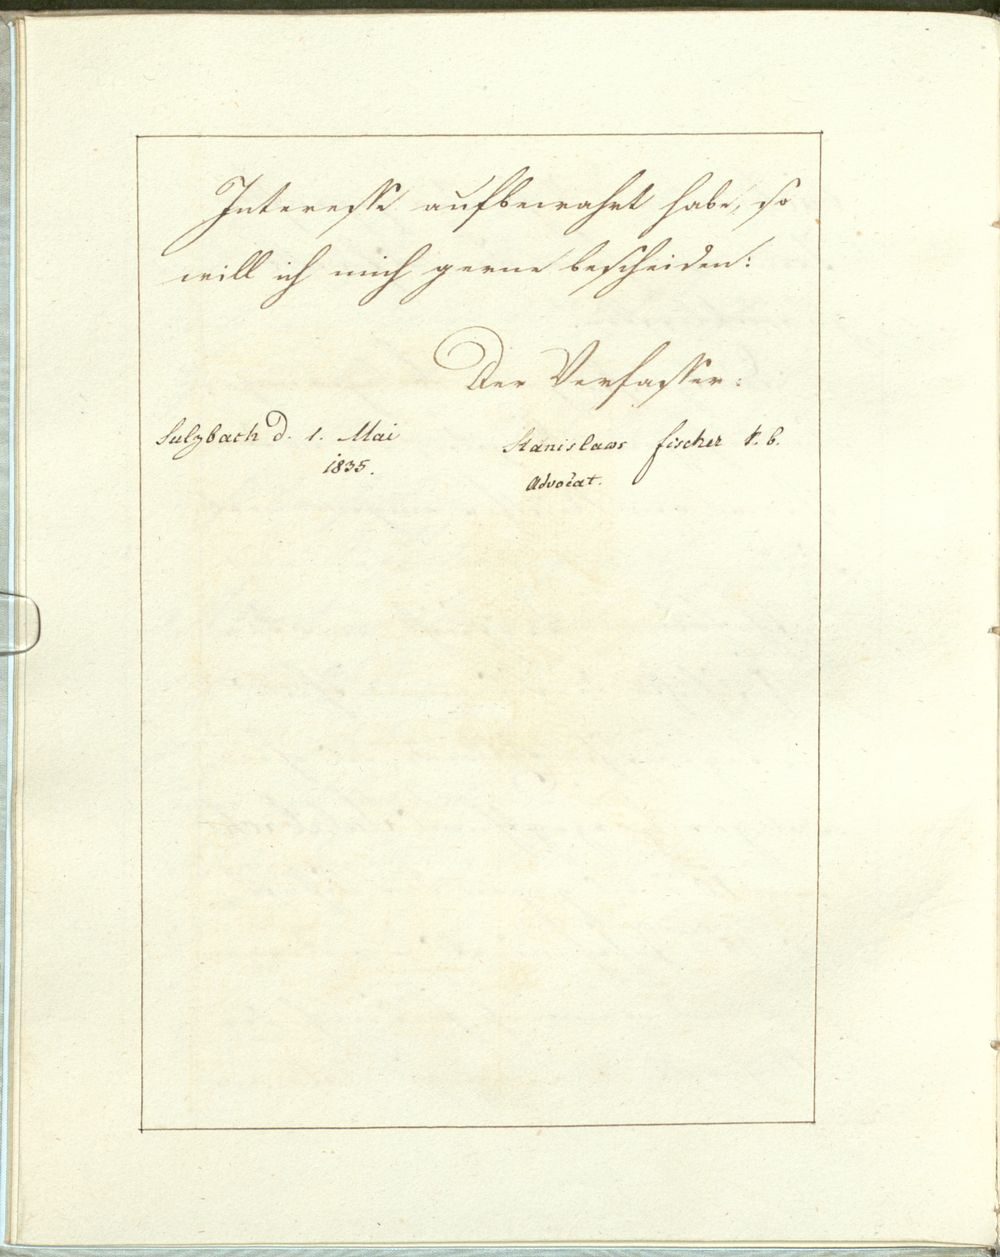 Interesse aufbewahrt habe, so
will ich mich gerne bescheiden:
Der Verfasser:
Sulzbach d. 1. Mai
1835.
Stanislaus Fischer k. b.
Advocat.